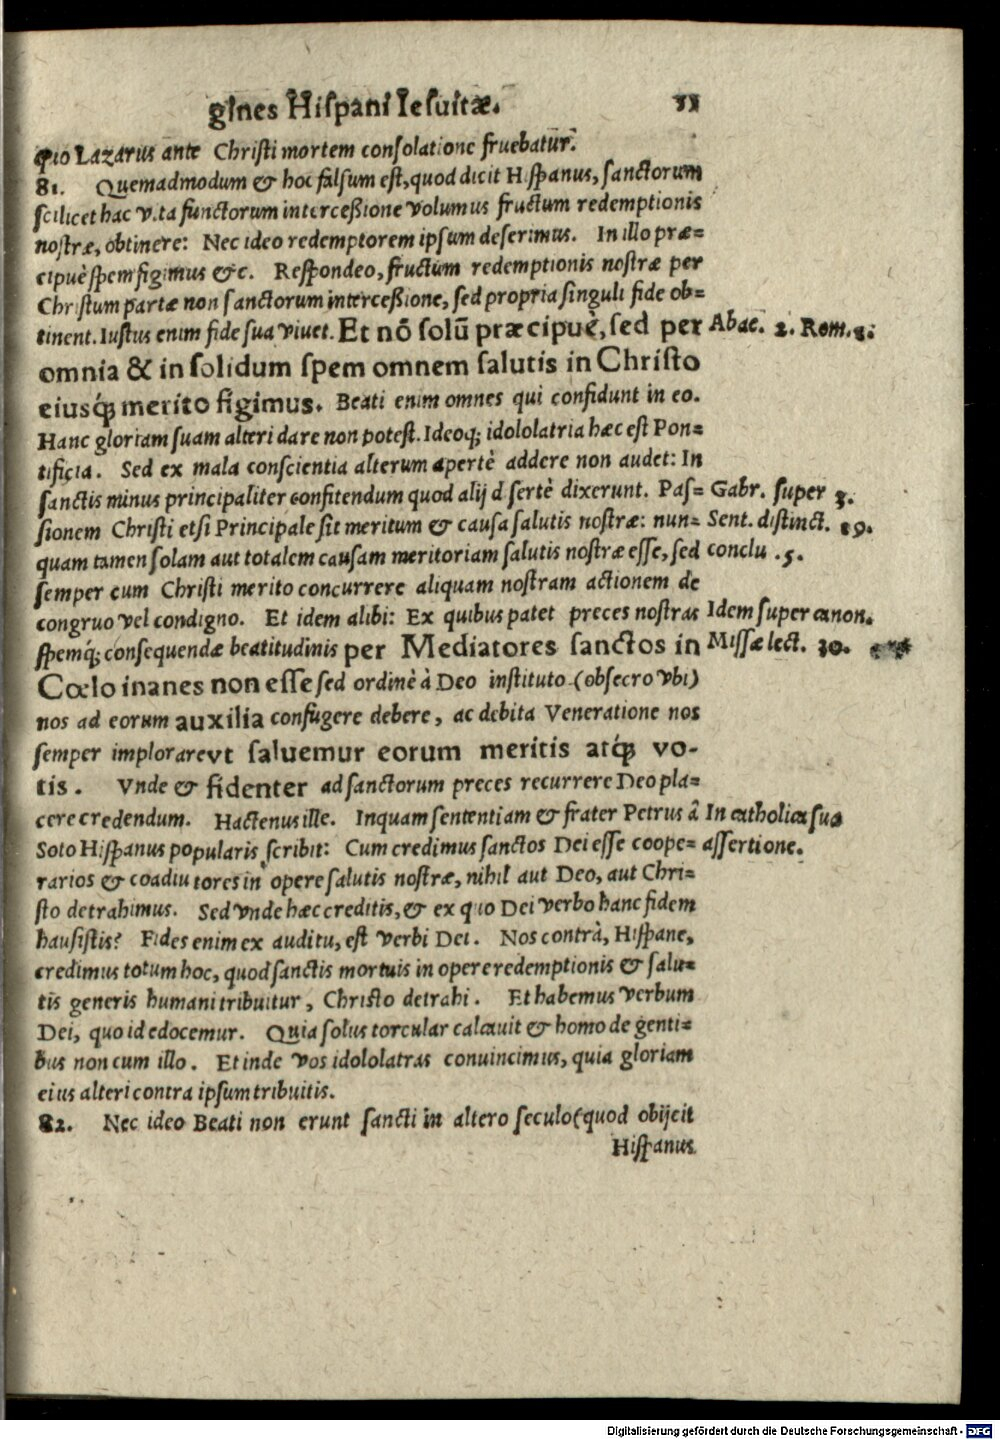 gines Hispani Iesuitæ. 11
quo Lazarus ante Christi mortem consolatione fruebatur.
81. Quemadmodum & hoc falsum est, quod dicit Hispanus, sanctorum
scilicet hac vita functorum interceßione volumus fructum redemptionis
nostræ, obtinere: Nec ideo redemptorem ipsum deserimus. In illo præ=
cipuè spem figimus &c. Respondeo, fructum redemptionis nostræ per
Christum partæ non sanctorum interceßione, sed propria singuli fide ob=
tinent. Iustus enim fide sua viuet. Et nõ solũ præcipuè, sed per Abac. 2. Rom. 1.
omnia & in solidum spem omnem salutis in Christo
eiusq́; merito figimus. Beati enim omnes qui confidunt in eo.
Hanc gloriam suam alteri dare non potest. Ideoq; idololatria hæc est Pon=
tificia. Sed ex mala conscientia alterum apertè addere non audet: In
sanctis minus principaliter confitendum quod alij d sertè dixerunt. Pas= Gabr. super 3.
sionem Christi etsi Principale sit meritum & causa salutis nostræ: nun= Sent. distinct. 19.
quam tamen solam aut totalem causam meritoriam salutis nostræ esse, sed conclu. 5.
semper cum Christi merito concurrere aliquam nostram actionem de
congruo vel condigno. Et idem alibi: Ex quibus patet preces nostras Idem super canon.
spemq́; consequendæ beatitudinis per Mediatores sanctos in Missæ lect. 30.
Cœlo inanes non esse sed ordinè à Deo instituto (obsecro vbi)
nos ad eorum auxilia confugere debere, ac debita Veneratione nos
semper implorare vt saluemur eorum meritis atq́; vo-
tis. Vnde & fidenter ad sanctorum preces recurrere Deo pla=
cere credendum. Hactenus ille. Inquam sententiam & frater Petrus à In catholica sua
Soto Hispanus popularis scribit: Cum credimus sanctos Dei esse coope= assertione.
rarios & coadiutores in opere salutis nostræ, nihil aut Deo, aut Chri=
sto detrahimus. Sed vnde hæc creditis, & ex quo Dei verbo hanc fidem
hausistis? Fides enim ex auditu, est verbi Dei. Nos contrà, Hispane,
credimus totum hoc, quod sanctis mortuis in opere redemptionis & salu=
tis generis humani tribuitur, Christo detrahi. Et habemus verbum
Dei, quo id edocemur. Quia solus torcular calcauit & homo de genti=
bus non cum illo. Et inde vos idololatras conuincimus, quia gloriam
eius alteri contra ipsum tribuitis.
82. Nec ideo Beati non erunt sancti in altero seculo (quod obijcit
Hispanus
Digitalisierung gefördert durch die Deutsche Forschungsgemeinschaft - DFG